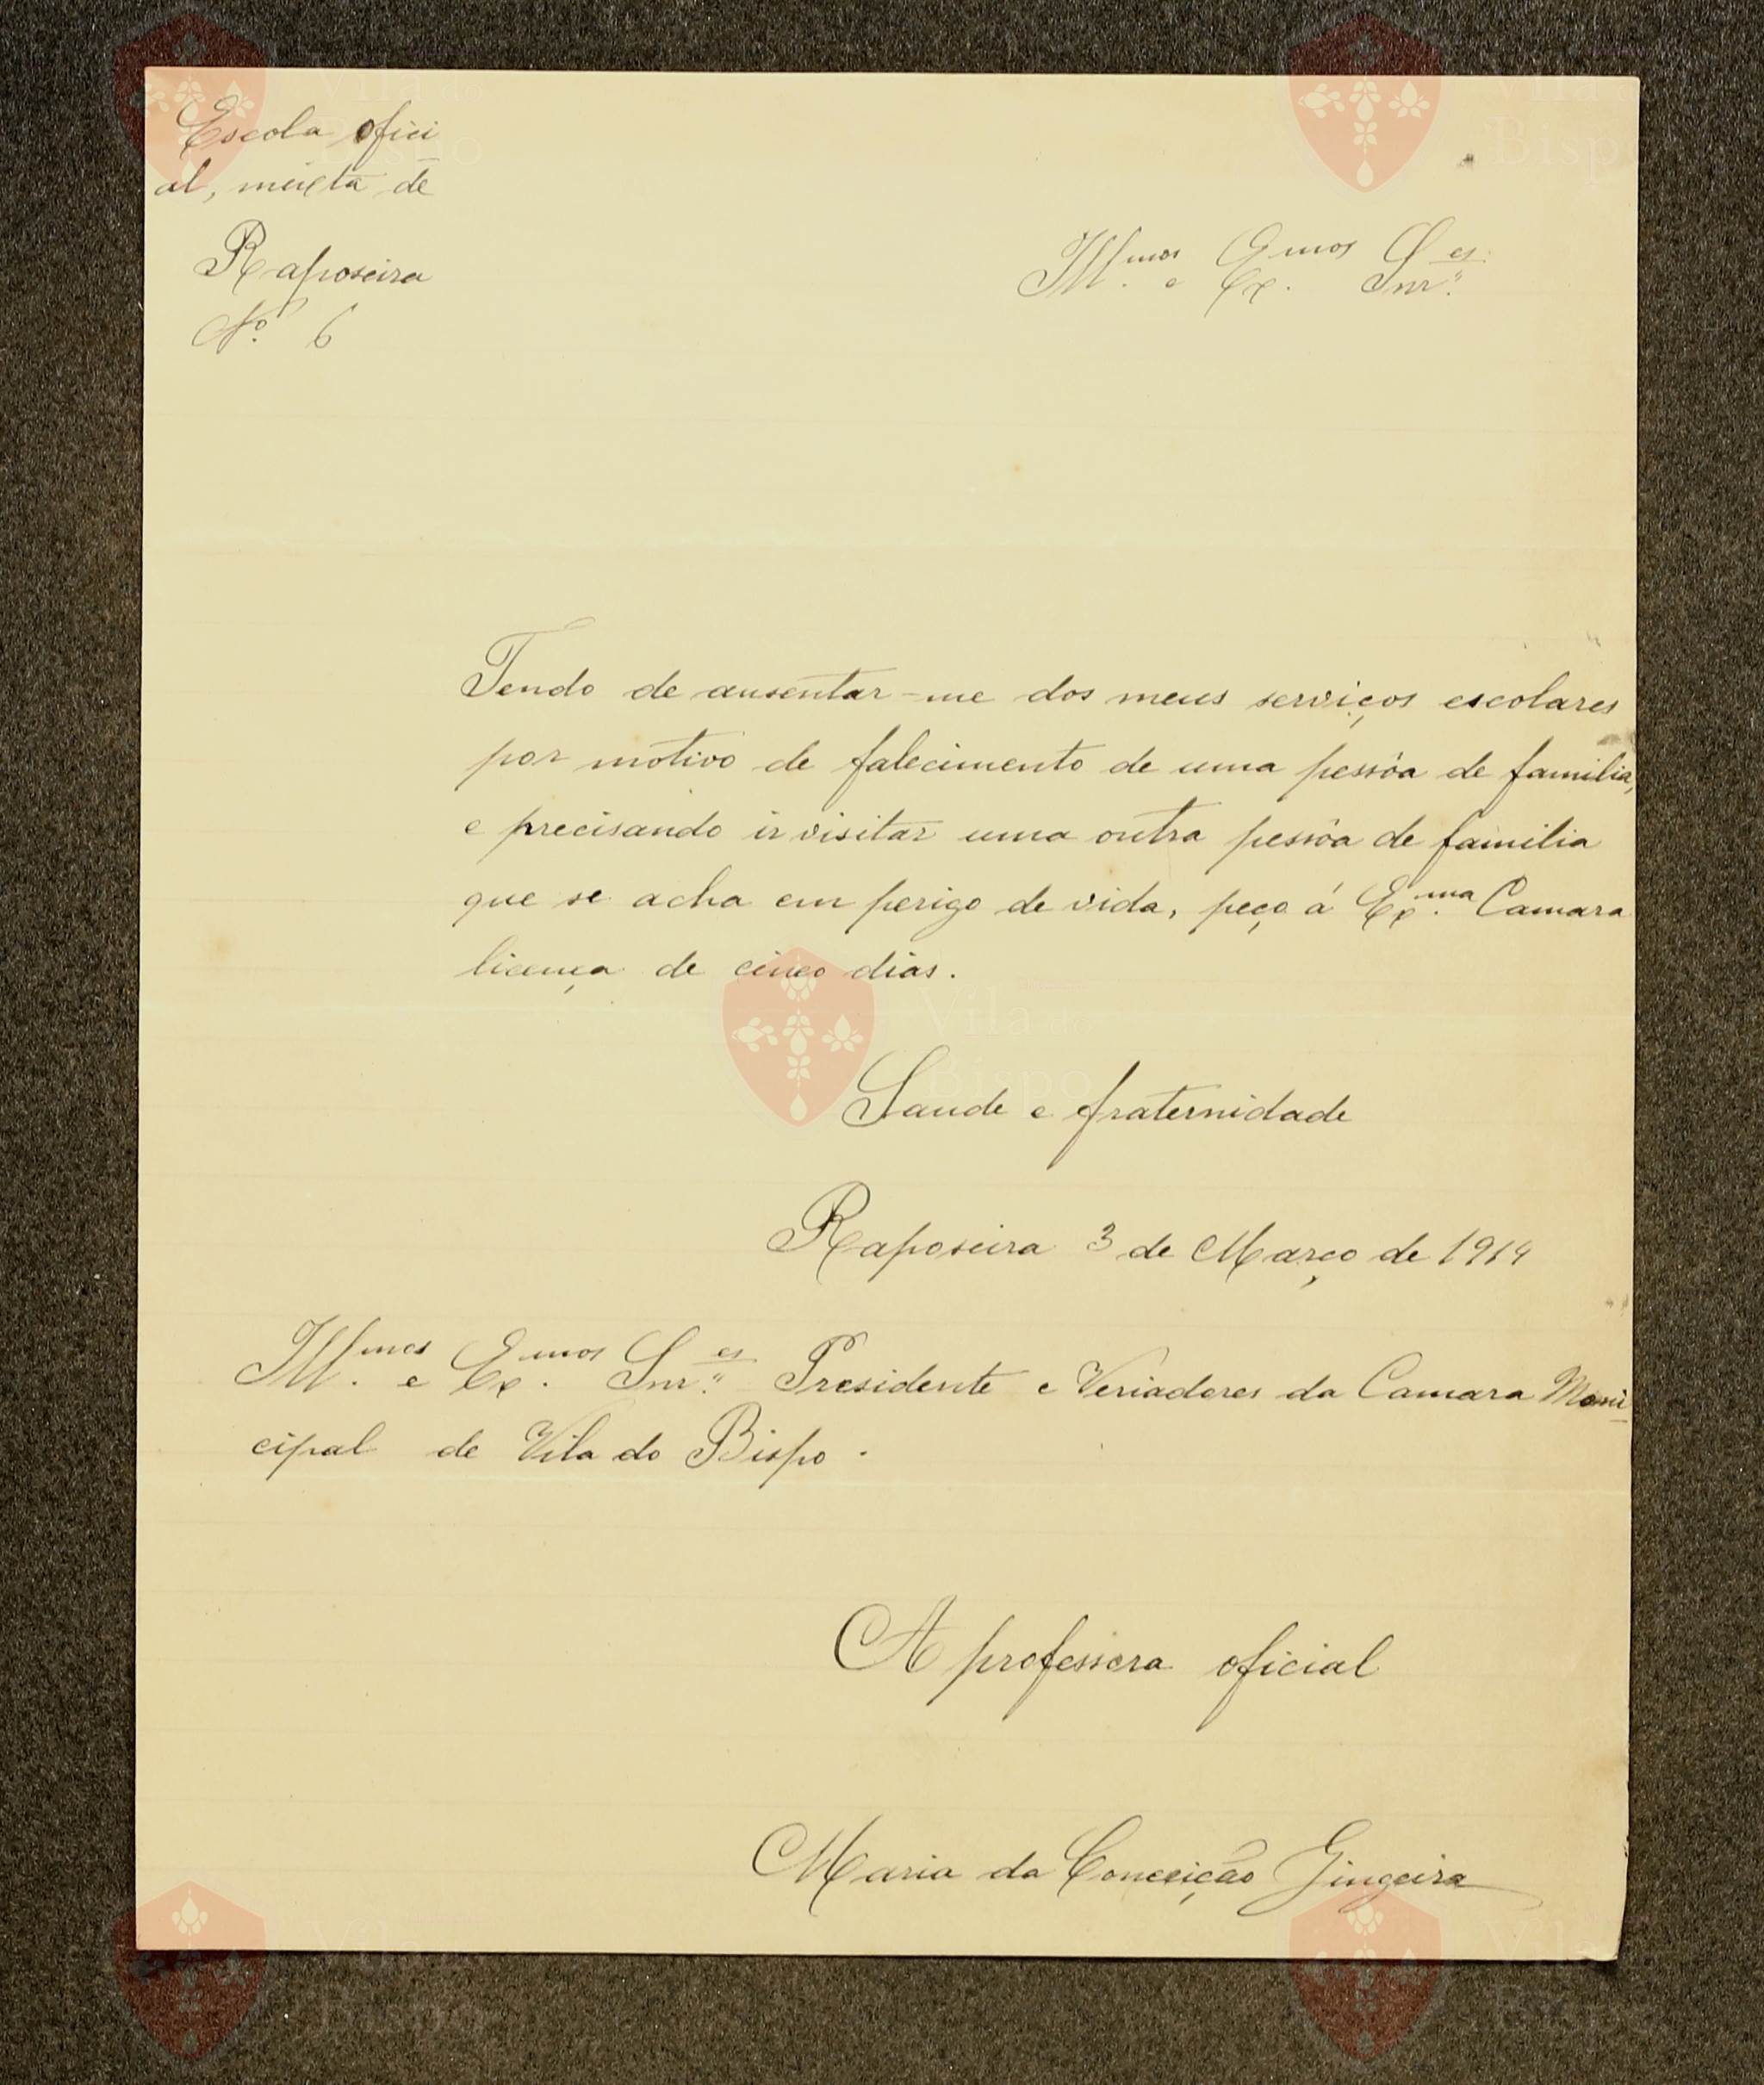 Escola ofici
al, mixta de
Raposeira
Nº 6
Ill.mos e Ex.mos Snr.es
Tendo de ausentar-me dos meus serviços escolares
por motivo de falecimento de uma pessôa de familia,
e precisando ir visitar uma outra pessôa de familia
que se acha em perigo de vida, peço á Ex.ma Camara
licença de cinco dias.
Saude e fraternidade
Raposeira 3 de Março de 1914
Ill.mos e Ex.mos Snr.es Presidente e Veriadores da Camara Muni
cipal de Vila do Bispo.
A professora oficial
Maria da Conceição Gingeira
Vila do
Bispo